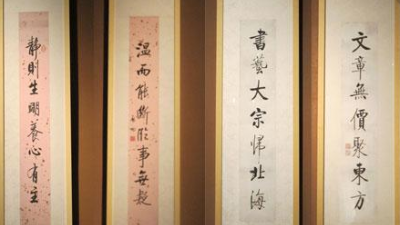 静則生明養心有主
温而能断臨事無疑
書藝大宗帰北海
文章無價聚東方